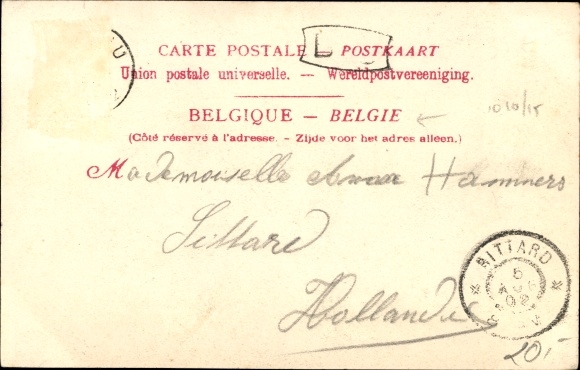 U
L
CARTE POSTALE – POSTKAART
Union postale universelle. — Wereldpostvereeniging.
BELGIQUE — BELGIE
(Côté réservé à l'adresse. - Zijde voor het adres alleen.)
Mademoiselle Anna Hammers
Sittard
Hollande
SITTARD
5
AUG
02
20,-